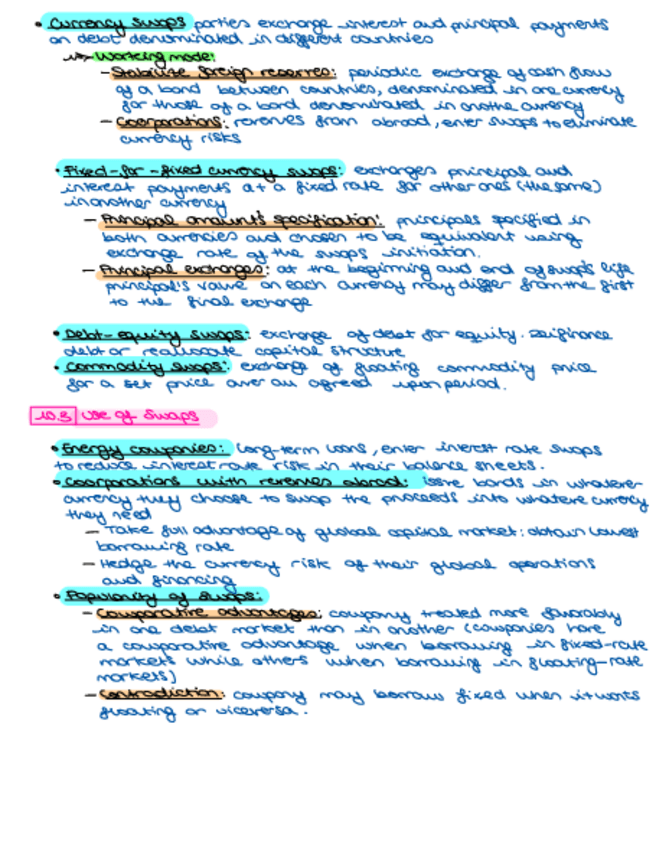 • Currency swaps parties exchange interest and principal payments
on debt denominated in different countries
Working mode:
– Stabilise foreign reserves: periodic exchange of cash flow
of a bond between countries, denominated in one currency
for those of a bond denominated in another currency
– Coorporations: revenues from abroad, enter swaps to eliminate
currency risks
• Fixed-for-fixed currency swaps: exchanges principal and
interest payments at a fixed rate for other ones (the same)
in another currency
– Principal amounts specification: principals specified in
both currencies and chosen to be equivalent using
exchange rate of the swaps initiation.
– Principal exchanges: at the beginning and end of swap's life
principal's value on each currency may differ from the first
to the final exchange
• Debt-equity swaps: exchange of debt for equity. Refinance
debt or reallocate capital structure
• Commodity swaps: exchange of floating commodity price
for a set price over an agreed upon period.
10.3 Use of Swaps
• Energy companies: long-term loans, enter interest rate swaps
to reduce interest rate risk in their balance sheets.
• Coorporations with revenues abroad: issue bonds in whatever
currency they choose to swap the proceeds into whatever currency
they need
– Take full advantage of global capital market: obtain lowest
borrowing rate
– Hedge the currency risk of their global operations
and financing
• Popularity of swaps:
– Comparative advantages: company treated more favorably
in one debt market than in another (companies have
a comparative advantage when borrowing in fixed-rate
markets while others when borrowing in floating-rate
markets)
– Contradiction: company may borrow fixed when it wants
floating or viceversa.